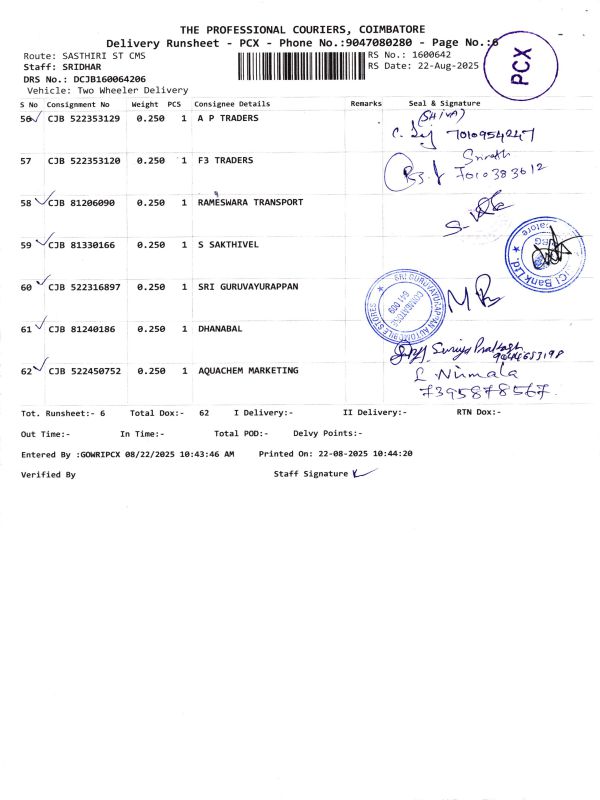 THE PROFESSIONAL COURIERS, COIMBATORE
Delivery Runsheet - PCX - Phone No.:9047080280 - Page No.:6
PCX
Route: SASTHIRI ST CMS RS No.: 1600642
Staff: SRIDHAR RS Date: 22-Aug-2025
DRS No.: DCJB160064206
Vehicle: Two Wheeler Delivery
S No Consignment No Weight PCS Consignee Details Remarks Seal & Signature
56 CJB 522353129 0.250 1 A P TRADERS
7010954247
57 CJB 522353120 0.250 1 F3 TRADERS
7010383612
58 CJB 81206090 0.250 1 RAMESWARA TRANSPORT
59 CJB 81330166 0.250 1 S SAKTHIVEL
ICI Bank Ltd.
60 CJB 522316897 0.250 1 SRI GURUVAYURAPPAN
SRI GURUVAYURAPPAN AUTOMOBILE STORES
COIMBATORE
641 009
61 CJB 81240186 0.250 1 DHANABAL
Suriya Prakash
62 CJB 522450752 0.250 1 AQUACHEM MARKETING
L. Nirmala
7395878567.
Tot. Runsheet:- 6 Total Dox:- 62 I Delivery:- II Delivery:- RTN Dox:-
Out Time:- In Time:- Total POD:- Delvy Points:-
Entered By :GOWRIPCX 08/22/2025 10:43:46 AM Printed On: 22-08-2025 10:44:20
Verified By Staff Signature